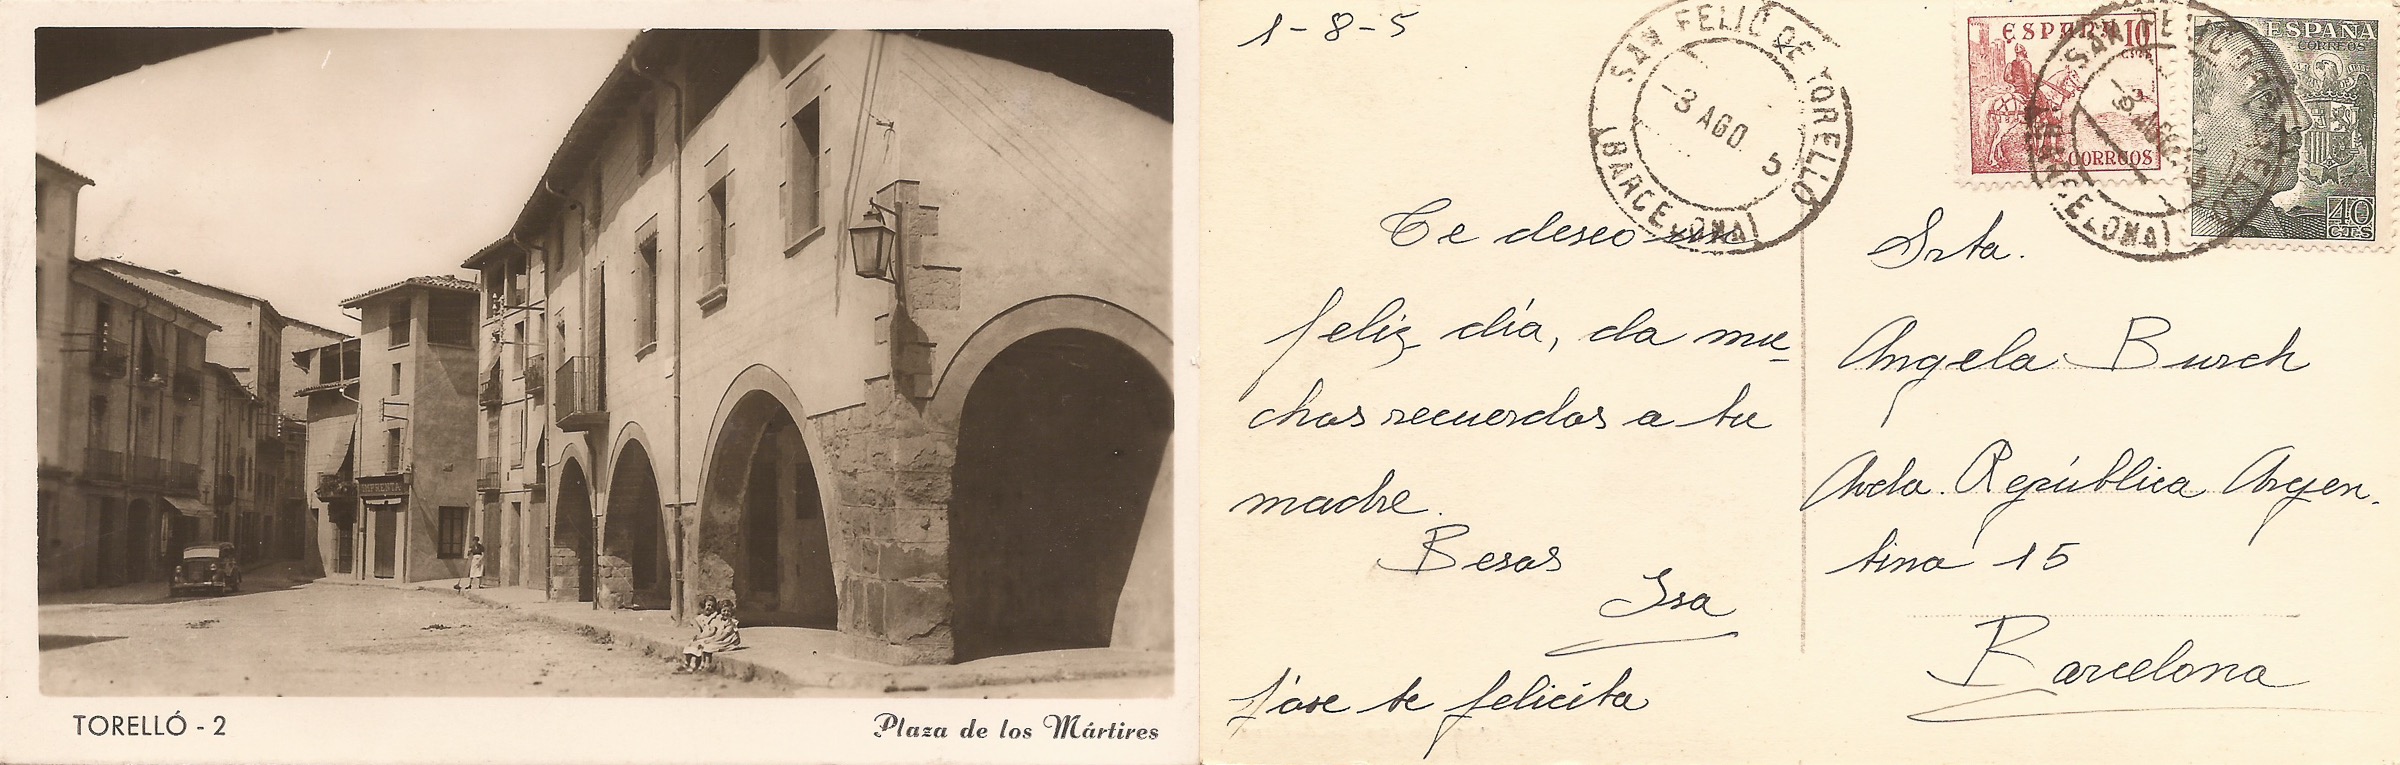 IMPRENTA
TORELLÓ - 2
Plaza de los Mártires
1-8-5
SAN FELIO DE TORELLO
-3 AGO 5
(BARCELONA)
ESPAÑA 10
CORREOS
ESPAÑA
CORREOS
40
CTS
Te deseo un
feliz día, da mu-
chos recuerdos a tu
madre.
Besos
Isa
José te felicita
Srta.
Angela Burch
Avda. República Argen-
tina 15
Barcelona